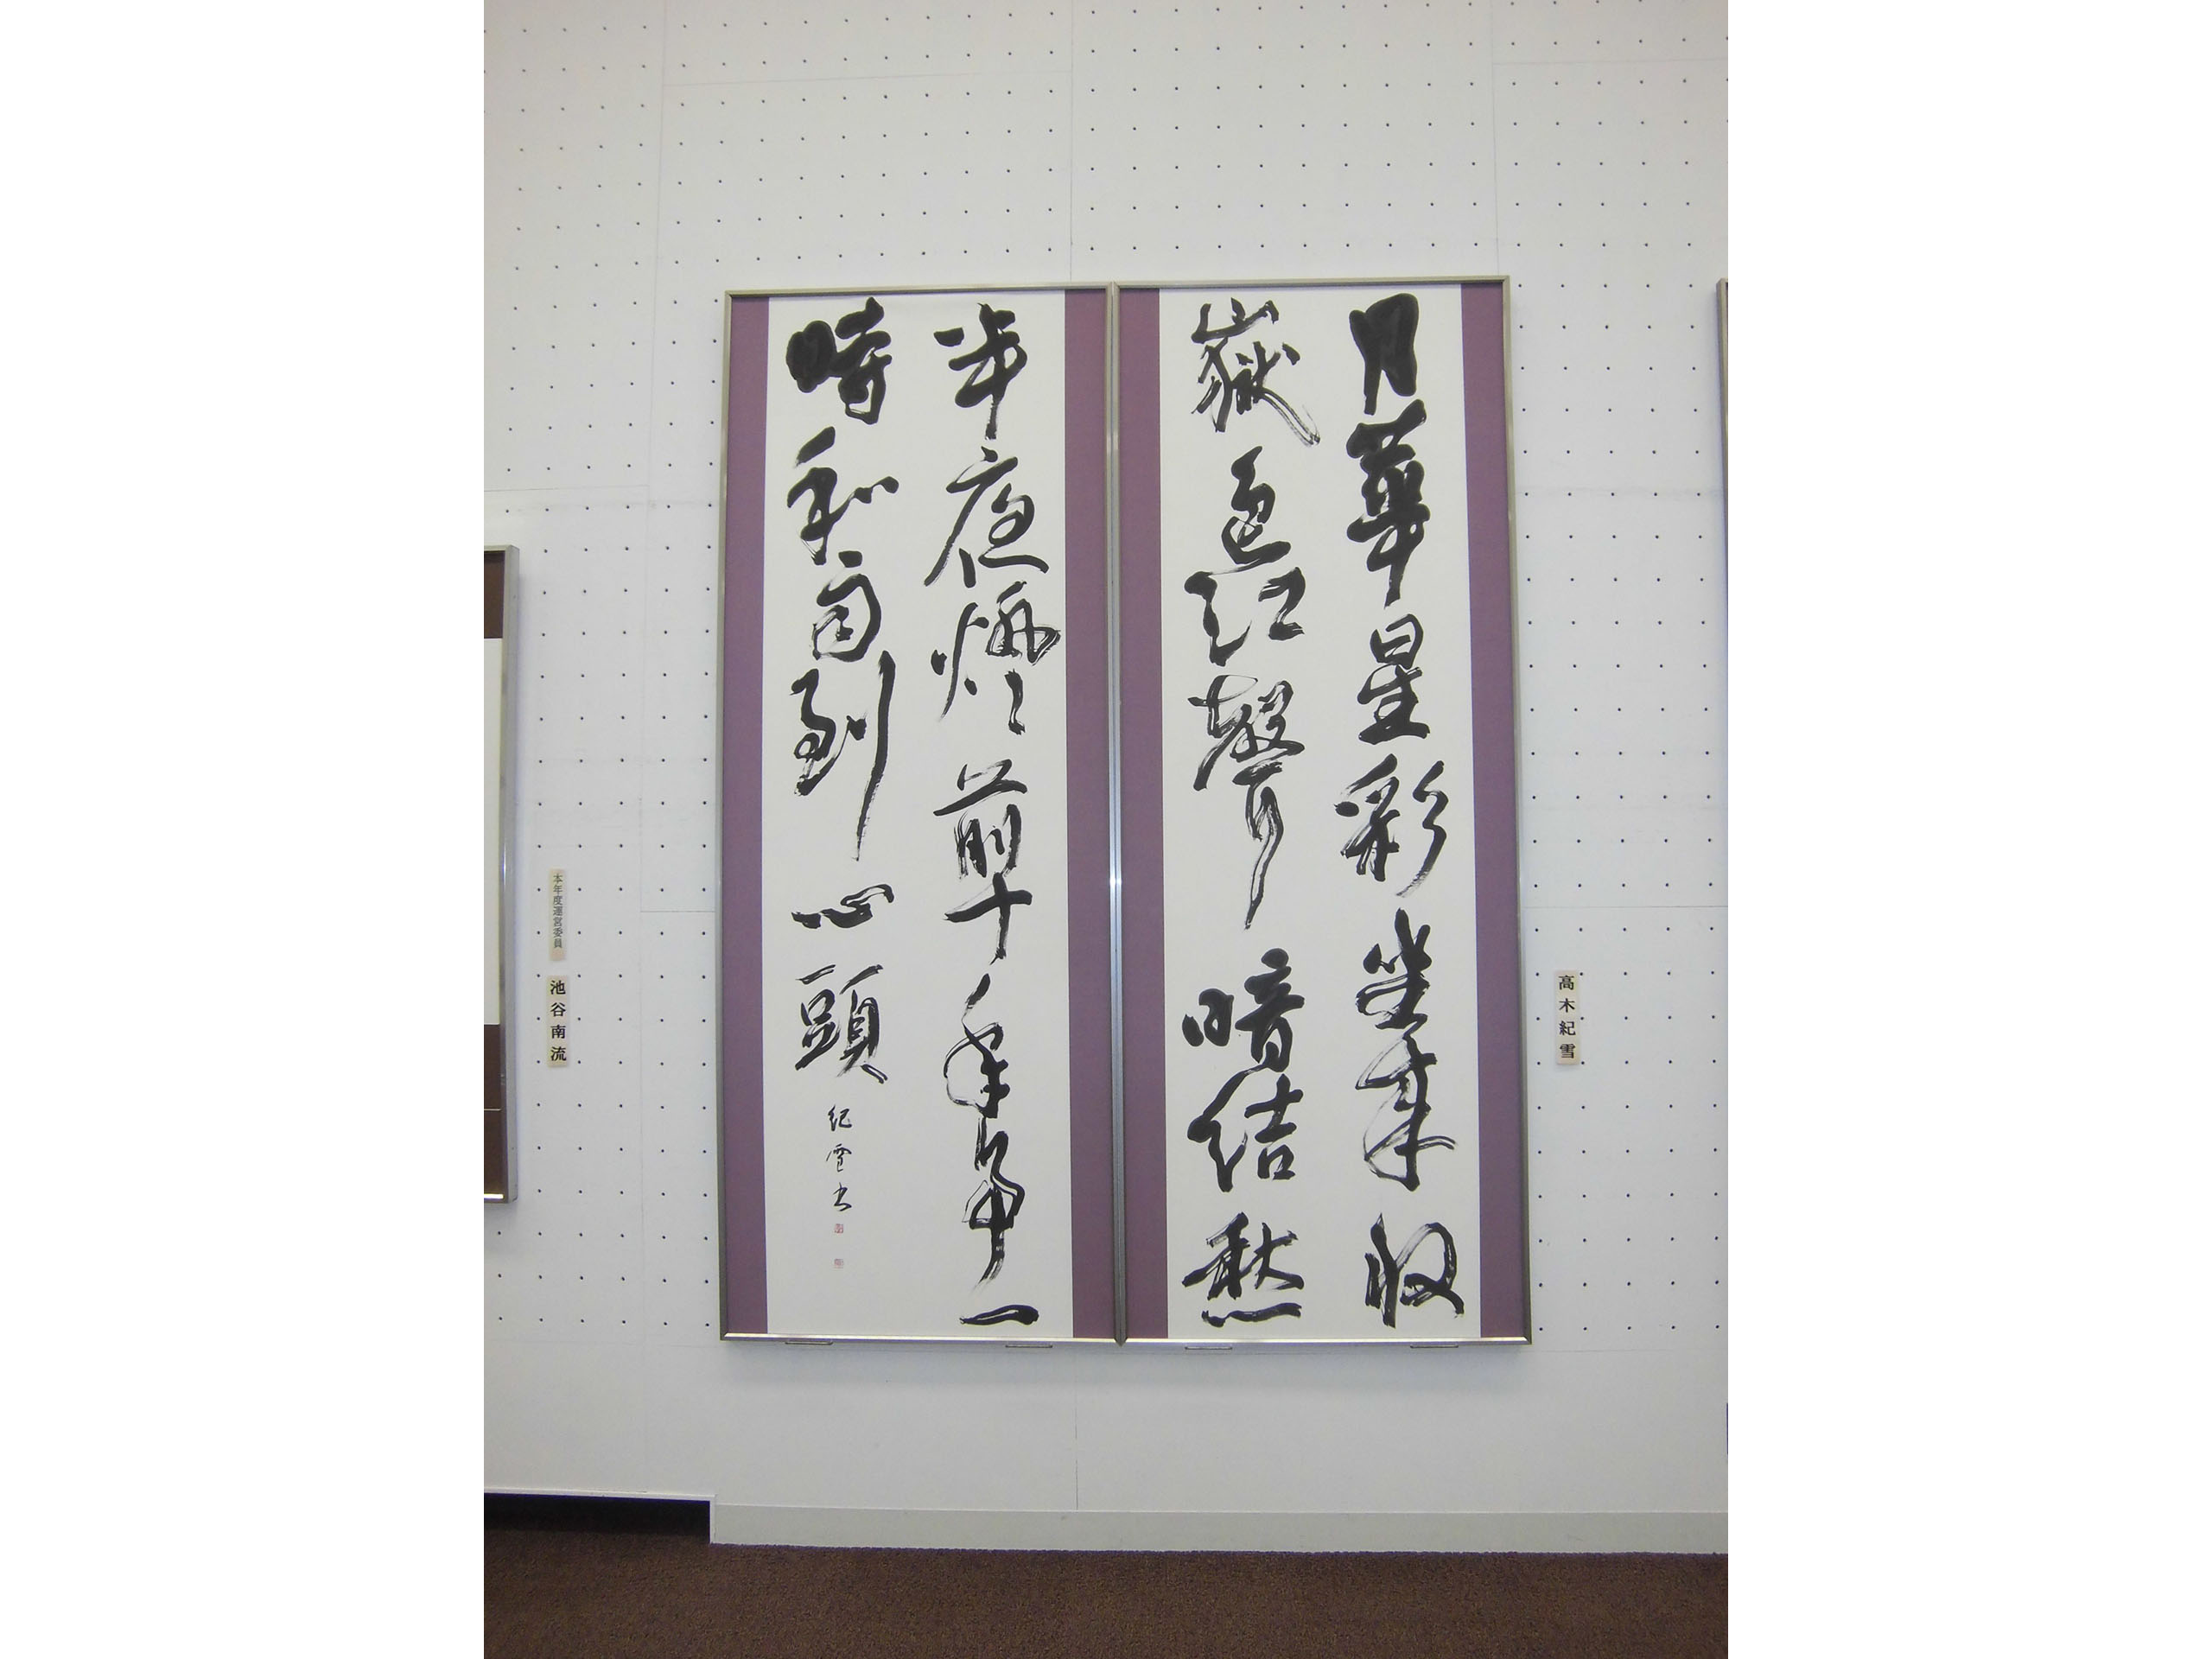 月華星彩坐來收
嶽色江聲暗結愁
半夜燈前十年事一
時和雨到心頭
紀雪書
高木紀雪
本年度運営委員
池谷南流